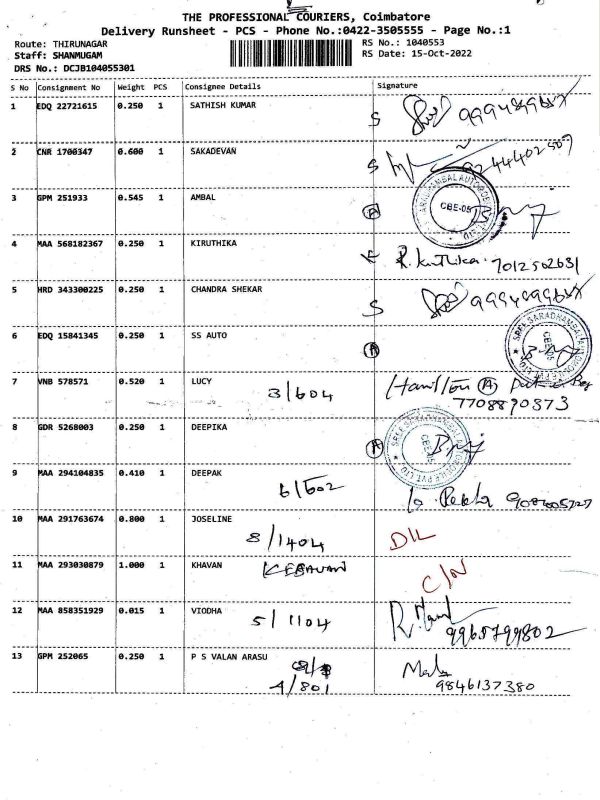 THE PROFESSIONAL COURIERS, Coimbatore
Delivery Runsheet - PCS - Phone No.:0422-3505555 - Page No.:1
Route: THIRUNAGAR
Staff: SHANMUGAM
DRS No.: DCJB104055301
RS No.: 1040553
RS Date: 15-Oct-2022
S No Consignment No Weight PCS Consignee Details Signature
1 EDQ 22721615 0.250 1 SATHISH KUMAR S
2 CNR 1700347 0.600 1 SAKADEVAN S
3 GPM 251933 0.545 1 AMBAL A
CBE-05
4 MAA 568182367 0.250 1 KIRUTHIKA R. Kiruthika. 7012562631
5 HRD 343300225 0.250 1 CHANDRA SHEKAR S
6 EDQ 15841345 0.250 1 SS AUTO A
CBE-05
7 VNB 578571 0.520 1 LUCY 3/604 A
7708890373
8 GDR 5268003 0.250 1 DEEPIKA A
CBE-05
9 MAA 294104835 0.410 1 DEEPAK 6/602
10 MAA 291763674 0.800 1 JOSELINE 8/1404 D/L
11 MAA 293030879 1.000 1 KHAVAN KESAVAN C/N
12 MAA 858351929 0.015 1 VIODHA 5/1104
9965799802
13 GPM 252065 0.250 1 P S VALAN ARASU
4/801 9846137380